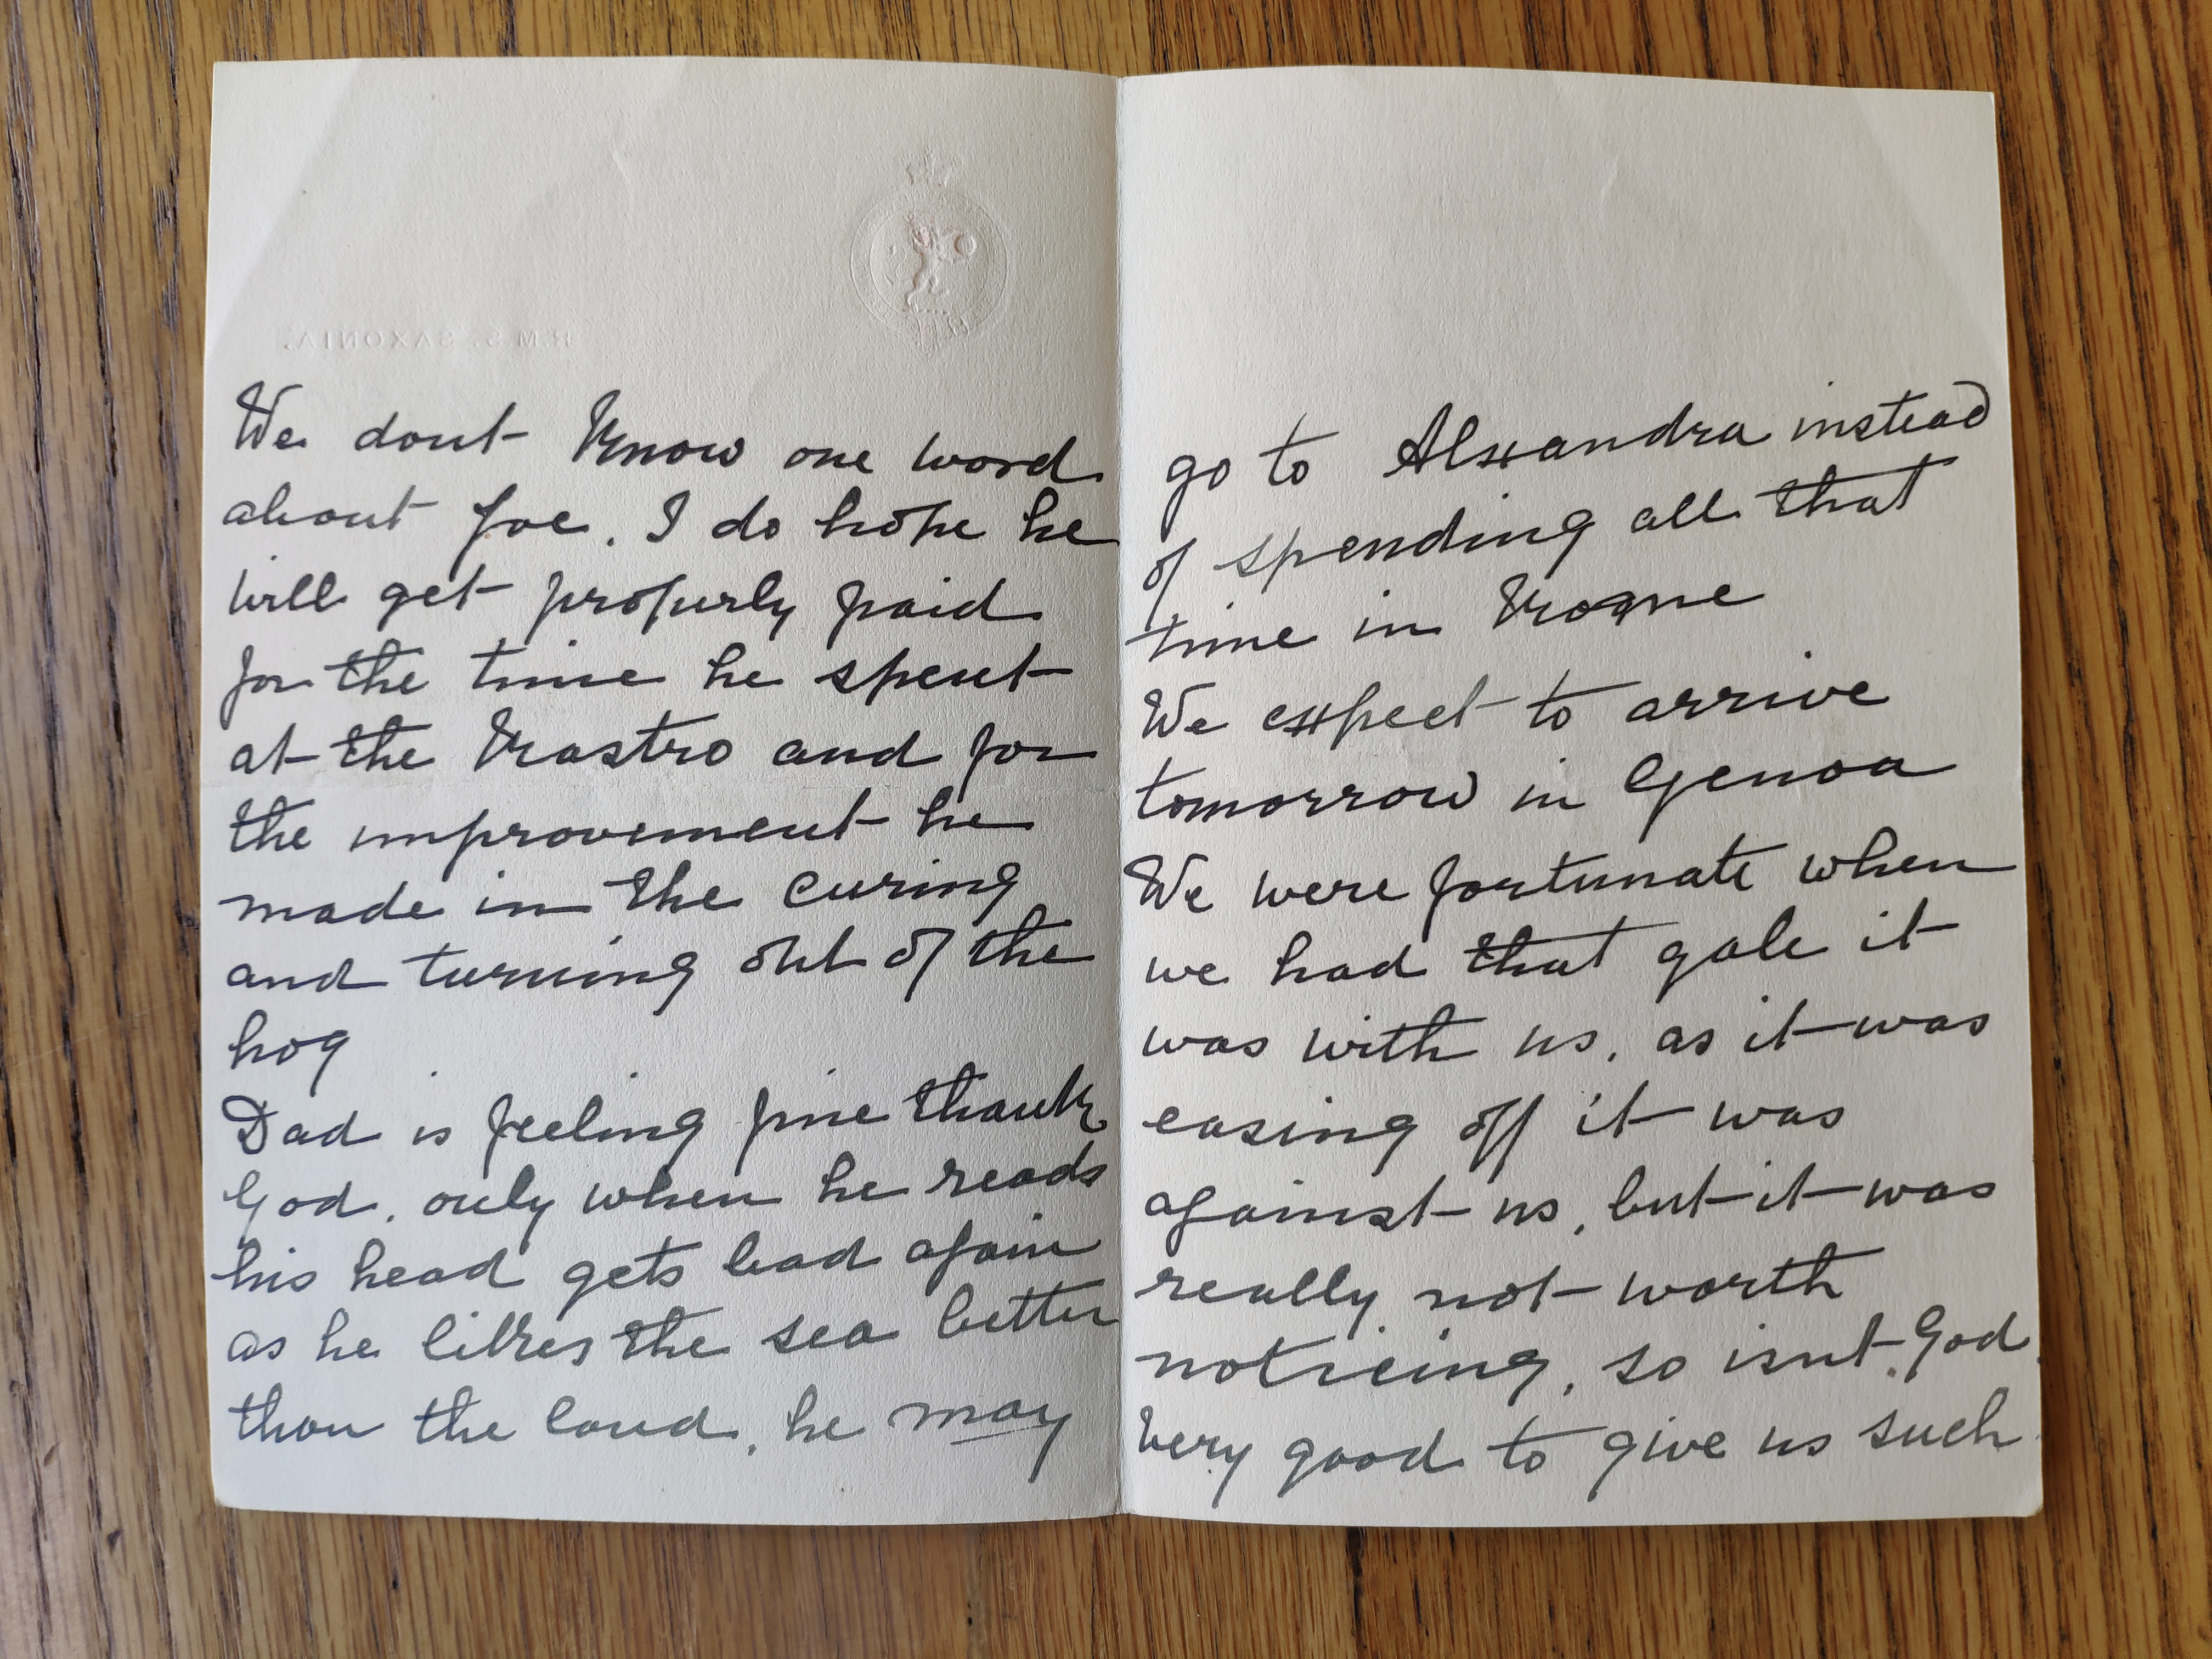 R.M.S. SAXONIA.
We dont Know one word
about Joe. I do hope he
will get properly paid
for the time he spent
at the Krastro and for
the improvement he
made in the curing
and turning out of the
hog
Dad is feeling fine thank
God, only when he reads
his head gets bad again
as he likes the sea better
than the land, he may
go to Alexandra instead
of spending all that
time in
We expect to arrive
tomorrow in Genoa
We were fortunate when
we had that gale it
was with us, as it was
easing off it was
against us, but it was
really not worth
noticing, so isnt God
very good to give us such